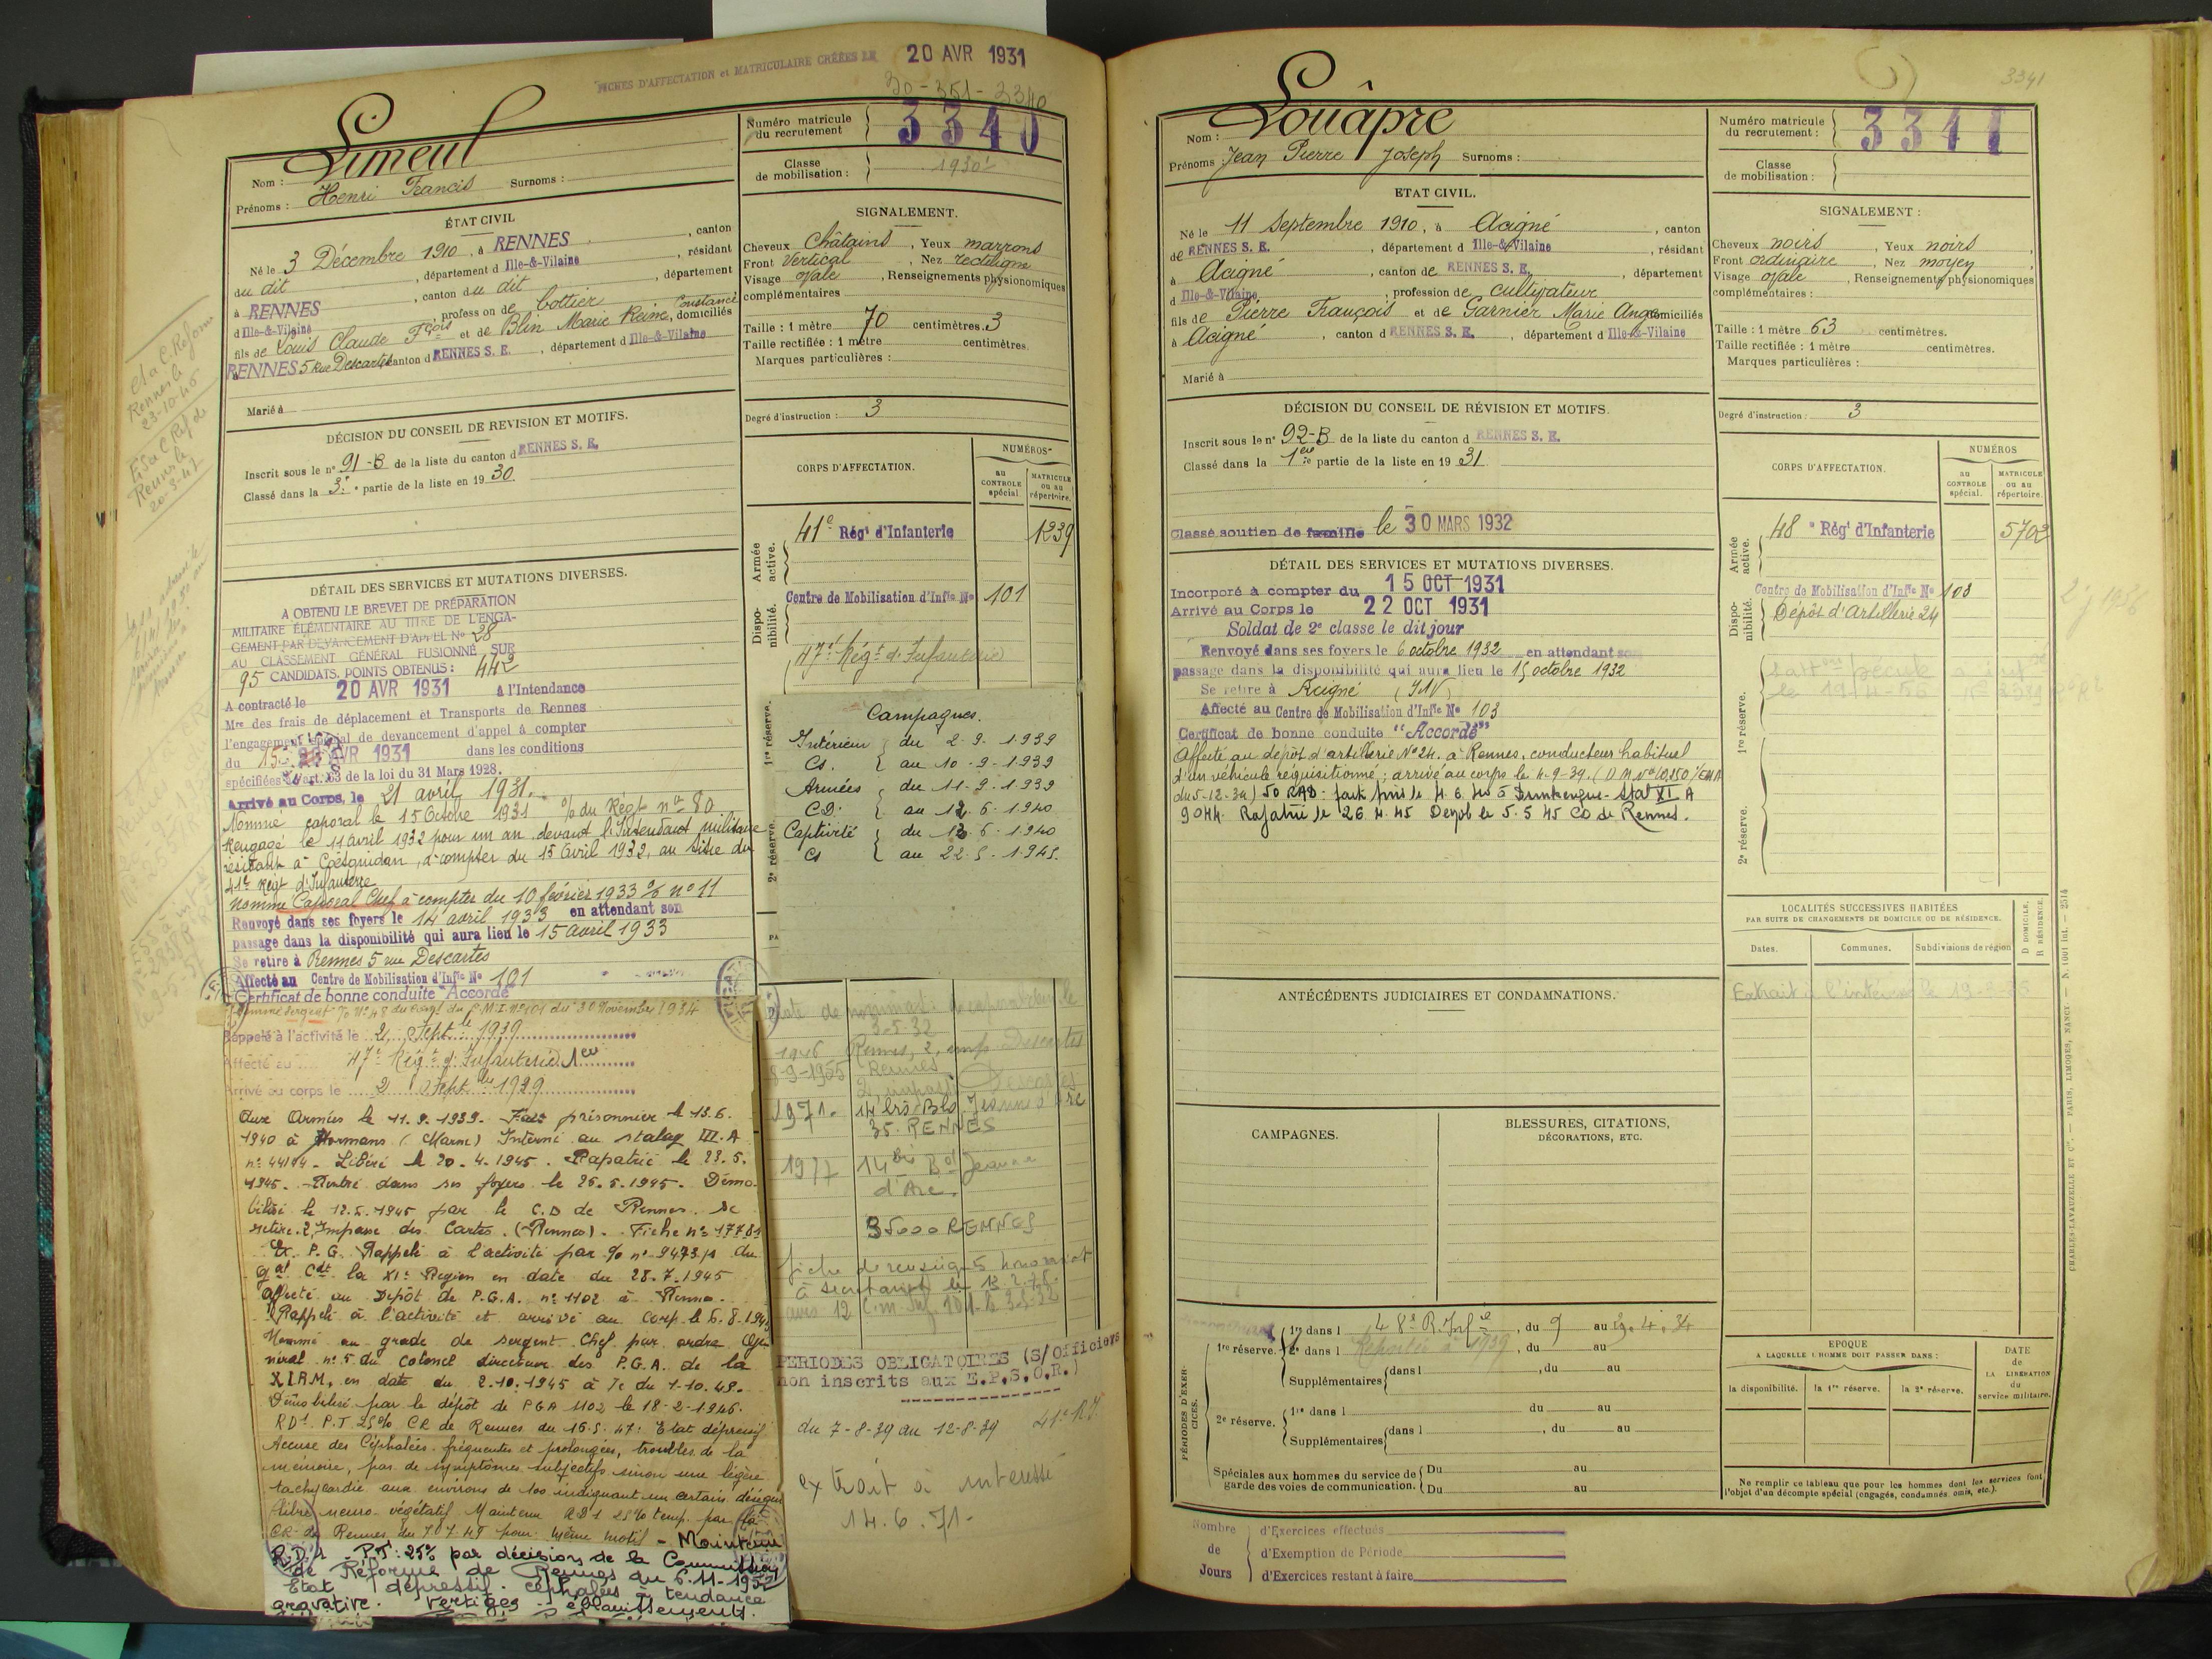 FICHES D'AFFECTATION et MATRICULAIRE CRÉÉES LE 20 AVR 1931
30-351-3340
Nom : Limeul
Prénoms : Henri Francis Surnoms :
Numéro matricule du recrutement 3340
Classe de mobilisation : 1930
ÉTAT CIVIL
Né le 3 Décembre 1910, à RENNES, canton
du dit, département d Ille-&-Vilaine, résidant
à RENNES, canton du dit, département
d Ille-&-Vilaine, profession de bottier
fils de Louis Claude Fçois et de Blin Marie Reine Constance, domiciliés
à RENNES 5 Rue Descartes canton d RENNES S. E., département d Ille-&-Vilaine
Marié à
SIGNALEMENT.
Cheveux Châtains, Yeux marrons
Front Vertical, Nez rectiligne
Visage ovale, Renseignements physionomiques
complémentaires
Taille : 1 mètre 70 centimètres. 3
Taille rectifiée : 1 mètre centimètres.
Marques particulières :
Degré d'instruction : 3
DÉCISION DU CONSEIL DE REVISION ET MOTIFS.
Inscrit sous le n° 91-B de la liste du canton d RENNES S. E.
Classé dans la 3e partie de la liste en 1930.
CORPS D'AFFECTATION.
NUMÉROS
au CONTROLE spécial.
MATRICULE ou au répertoire.
Armée active.
41e Régt d'Infanterie 1239
Disponibilité.
Centre de Mobilisation d'Inf<sup>ie</sup> N° 101
47e Régt d'Infanterie
1re réserve.
2e réserve.
DÉTAIL DES SERVICES ET MUTATIONS DIVERSES.
A OBTENU LE BREVET DE PRÉPARATION
MILITAIRE ÉLÉMENTAIRE AU TITRE DE L'ENGA-
GEMENT PAR DEVANCEMENT D'APPEL N° 28
AU CLASSEMENT GÉNÉRAL FUSIONNÉ SUR
95 CANDIDATS. POINTS OBTENUS : 442
A contracté le 20 AVR 1931 à l'Intendance
Mre des frais de déplacement et Transports de Rennes
l'engagement spécial de devancement d'appel à compter
du 15 AVR 1931 dans les conditions
spécifiées à l'art. 63 de la loi du 31 Mars 1928.
Arrivé au Corps, le 21 avril 1931.
Nommé caporal le 15 Octobre 1931 % du Régt n° 80
Rengagé le 11 avril 1932 pour un an devant l'Intendant militaire
résidant à Coëtquidan, à compter du 15 Avril 1932, au titre du
41e Régt d'Infanterie
Nommé Caporal Chef à compter du 10 février 1933 % n° 11
Renvoyé dans ses foyers le 14 avril 1933 en attendant son
passage dans la disponibilité qui aura lieu le 15 avril 1933
Se retire à Rennes 5 rue Descartes
Affecté au Centre de Mobilisation d'Infie N° 101
Certificat de bonne conduite "Accordé"
Nommé sergent % N° 48 du C.M.I. n° 101 du 30 Novembre 1934
Rappelé à l'activité le 2 Septbre 1939
Affecté au 47e Régt d'Infanterie
Arrivé au corps le 2 Septbre 1939
Aux Armées le 11.9.1939. Fait prisonnier le 13.6.
1940 à Dormans (Marne) Interné au stalag III.A
n° 44194. Libéré le 20.4.1945. Rapatrié le 23.5.
1945. Rentré dans ses foyers le 25.5.1945. Démo-
bilisé le 12.6.1945 par le C.D de Rennes. Se
retire 2, Impasse des Cartes (Rennes). Fiche n° 17781
Ex. P.G. Rappelé à l'activité par % n° 9473/1 du
Gal Cdt la XIe Région en date du 28.7.1945
Affecté au Dépôt de P.G.A. n° 1102 à Rennes.
Rappelé à l'activité et arrivé au Corps le 6.8.1945
Nommé au grade de sergent Chef par ordre Gé-
néral n° 5 du Colonel directeur des P.G.A. de la
XI R.M. en date du 2.10.1945 à Tc du 1-10.45.
Démobilisé par le dépôt de PGA 1102 le 18-2-1946.
RD1 P.T 25% CR de Rennes du 16.5.47 : Etat dépressif
Accuse des Céphalées fréquentes et prolongées, troubles de la
mémoire, pas de symptômes subjectifs sinon une légère
tachycardie aux environs de 100 indiquant un certain déséqui-
libre neuro-végétatif Maintenu RD1 25% temp. par la
CR de Rennes du 7.7.49 pour même motif - Maintenu
R.D.1 - P.T : 25% par décision de la Commission
de Réforme de Rennes du 6.11-1952
Etat dépressif. céphalées à tendance
gravative. vertiges - éblouissements.
Campagnes.
Intérieur { du 2.9.1939
Cs. { au 10-9-1939
Armées { du 11.9.1939
C.D. { au 12.6.1940
Captivité { du 13.6.1940
Cs { au 22.5.1945.
3-5-32
1946 Rennes, 2, imp. Descartes
8-9-1955 Rennes 2, impasse Descartes
1971. 14 bis Bld Jeanne d'Arc
35. RENNES
1977 14 bis Bd Jeanne d'Arc.
35000 RENNES
PERIODES OBLIGATOIRES (S/Officiers
non inscrits aux E.P.S.O.R.)
du 7-8-39 au 12-8-39 41e R.I.
extrait à intéressé
14.6.71-
3341
Nom : Louâpre
Prénoms : Jean Pierre Joseph Surnoms :
Numéro matricule du recrutement : 3341
Classe de mobilisation :
ETAT CIVIL.
Né le 11 Septembre 1910, à Acigné, canton
de RENNES S. E., département d Ille-&-Vilaine, résidant
à Acigné, canton de RENNES S. E., département
d Ille-&-Vilaine, profession de cultivateur
fils de Pierre François et de Garnier Marie Ange domiciliés
à Acigné, canton d RENNES S. E., département d Ille-&-Vilaine
Marié à
SIGNALEMENT :
Cheveux noirs, Yeux noirs
Front ordinaire, Nez moyen
Visage ovale, Renseignements physionomiques
complémentaires :
Taille : 1 mètre 63 centimètres.
Taille rectifiée : 1 mètre centimètres.
Marques particulières :
Degré d'instruction : 3
DÉCISION DU CONSEIL DE RÉVISION ET MOTIFS.
Inscrit sous le n° 92-B de la liste du canton d RENNES S. E.
Classé dans la 1ère partie de la liste en 1931
Classé soutien de famille le 30 MARS 1932
CORPS D'AFFECTATION.
NUMÉROS
au CONTROLE spécial.
MATRICULE ou au répertoire.
Armée active.
48e Régt d'Infanterie 5702
Disponibilité.
Centre de Mobilisation d'Infie N° 103
Dépôt d'Artillerie 24
1re réserve.
2e réserve.
DÉTAIL DES SERVICES ET MUTATIONS DIVERSES.
Incorporé à compter du 15 OCT 1931
Arrivé au Corps le 22 OCT 1931
Soldat de 2e classe le dit jour
Renvoyé dans ses foyers le 6 octobre 1932 en attendant son
passage dans la disponibilité qui aura lieu le 15 octobre 1932
Se retire à Acigné (I&V)
Affecté au Centre de Mobilisation d'Infie N° 103
Certificat de bonne conduite "Accordé"
Affecté au dépôt d'artillerie N° 24. à Rennes, conducteur habituel
d'un véhicule réquisitionné ; arrivé au corps le 4-9-39. (D M N° 10.350 1/EMA
du 5-12-39) 50 RAD : fait pris le 4.6.40 à Dunkerque - Stal XI A
9044. Rapatrié le 26.4.45 Demob le 5.5.45 CD de Rennes.
LOCALITÉS SUCCESSIVES HABITÉES
PAR SUITE DE CHANGEMENTS DE DOMICILE OU DE RÉSIDENCE.
Dates. Communes. Subdivisions de région D DOMICILE. R RÉSIDENCE.
ANTÉCÉDENTS JUDICIAIRES ET CONDAMNATIONS.
CAMPAGNES.
BLESSURES, CITATIONS, DÉCORATIONS, ETC.
PÉRIODES D'EXERCICES.
1re réserve. 1re dans l 48e R. Infie, du 9 au 29.4.34
2e dans l Reportée à 1939, du au
Supplémentaires dans l , du au
2e réserve. 1re dans l du au
Supplémentaires dans l , du au
Spéciales aux hommes du service de garde des voies de communication. Du au
Du au
EPOQUE
A LAQUELLE L'HOMME DOIT PASSER DANS :
la disponibilité. la 1re réserve. la 2e réserve.
DATE de LA LIBÉRATION du service militaire.
Ne remplir ce tableau que pour les hommes dont les services font
l'objet d'un décompte spécial (engagés, condamnés, omis, etc.).
Nombre de Jours
d'Exercices effectués
d'Exemption de Période
d'Exercices restant à faire
CHARLES-LAVAUZELLE ET Cie. — PARIS, LIMOGES, NANCY — N. 1001 int. — 2514